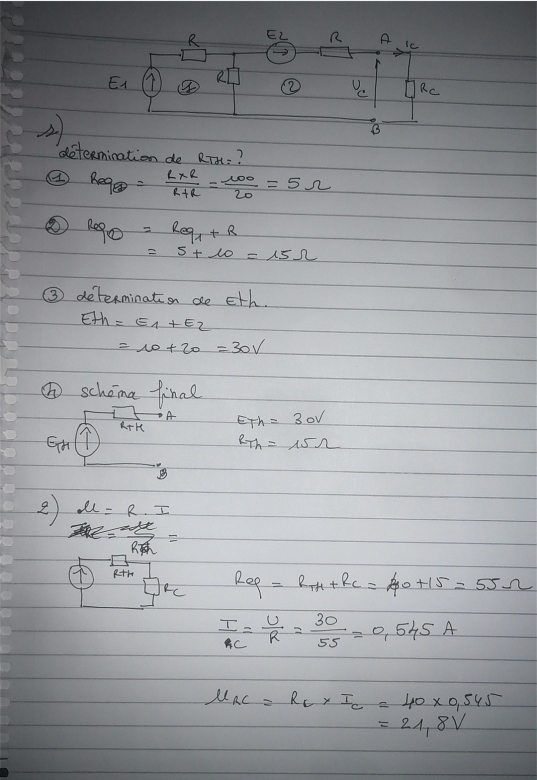 R E2 R A Ic
E1 ① R ② Uc Rc
B
1)
détermination de RTH = ?
① Req1 = R×R / R+R = 100 / 20 = 5 Ω
② Req② = Req1 + R
= 5 + 10 = 15 Ω
③ détermination de Eth.
Eth = E1 + E2
= 10 + 20 = 30V
④ schéma final
RTH A
ETH B
ETh = 30V
RTh = 15Ω
2) U = R . I
RTH RC
Req = RTH + RC = 40 + 15 = 55 Ω
I RC = U / R = 30 / 55 = 0,545 A
URC = Rc × Ic = 40 × 0,545
= 21,8V